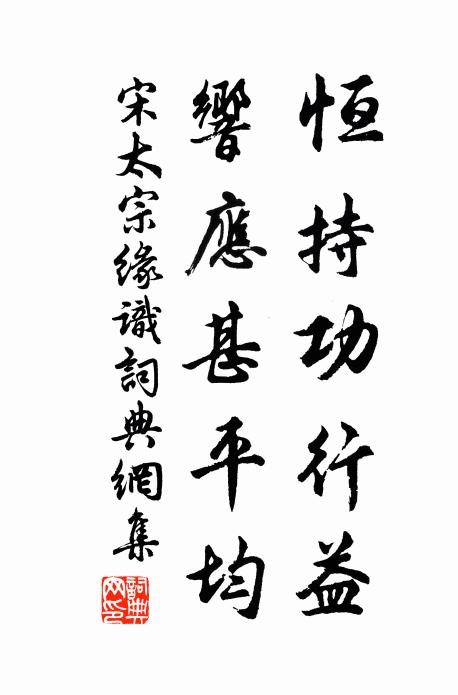 恒持功行益
響應甚平均
宋太宗緣識詞典網集
詞典網印